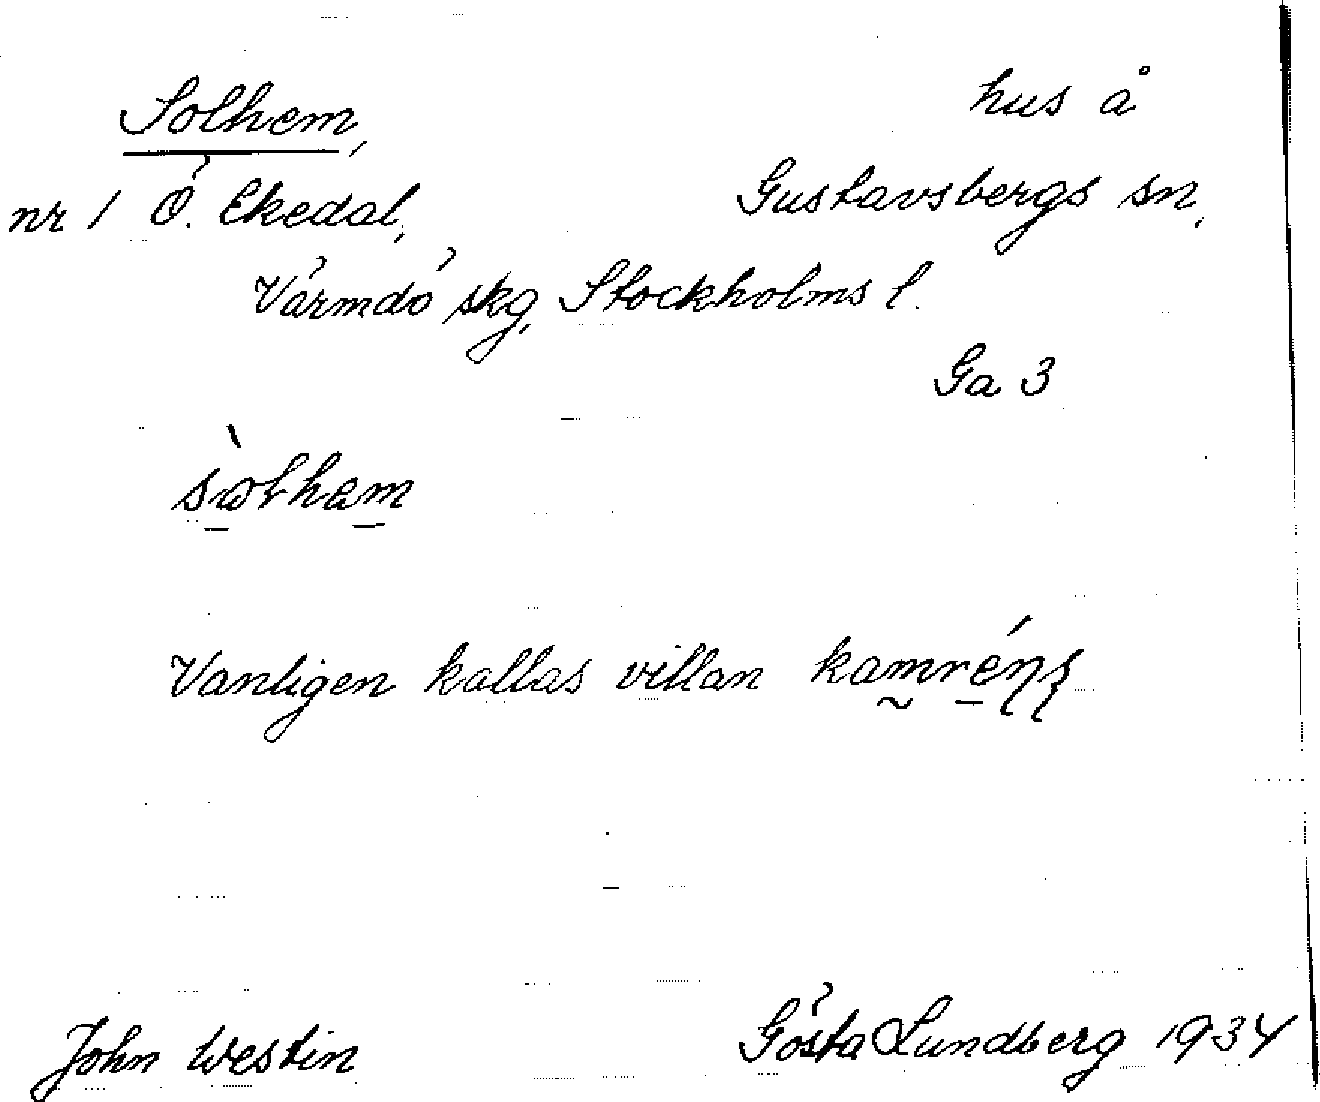 Solhem, hus å
nr 1 Ö. Ekedal, Gustavsbergs sn,
Värmdö skg, Stockholms l.
Ga 3
sòlham
Vanligen kallas villan kamréns
John Westin Gösta Lundberg 1934